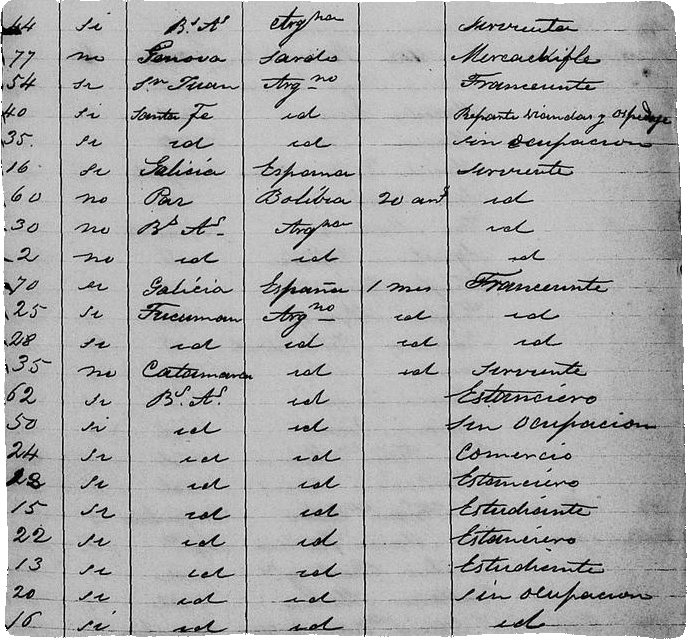 44 si Bs As Argna Servienta
77 no Genova Sardo Mercachifle
54 si Sn Juan Argno Franceunte
40 si Santa Fe id Reparte viandas y ospedaje
35 si id id Sin ocupacion
16 si Galicia Espama Serviente
60 no Paz Bolibia 20 ans id
30 no Bs As Argna id
2 no id id id
70 si Galicia España 1 mes Franceunte
25 si Tucuman Argno id id
28 si id id id id
35 no Catamarca id id Serviente
62 si Bs As id Estanciero
50 si id id Sin ocupacion
24 si id id Comercio
28 si id id Estanciero
15 si id id Estudiante
22 si id id Estanciero
13 si id id Estudiante
20 si id id Sin ocupacion
16 si id id id